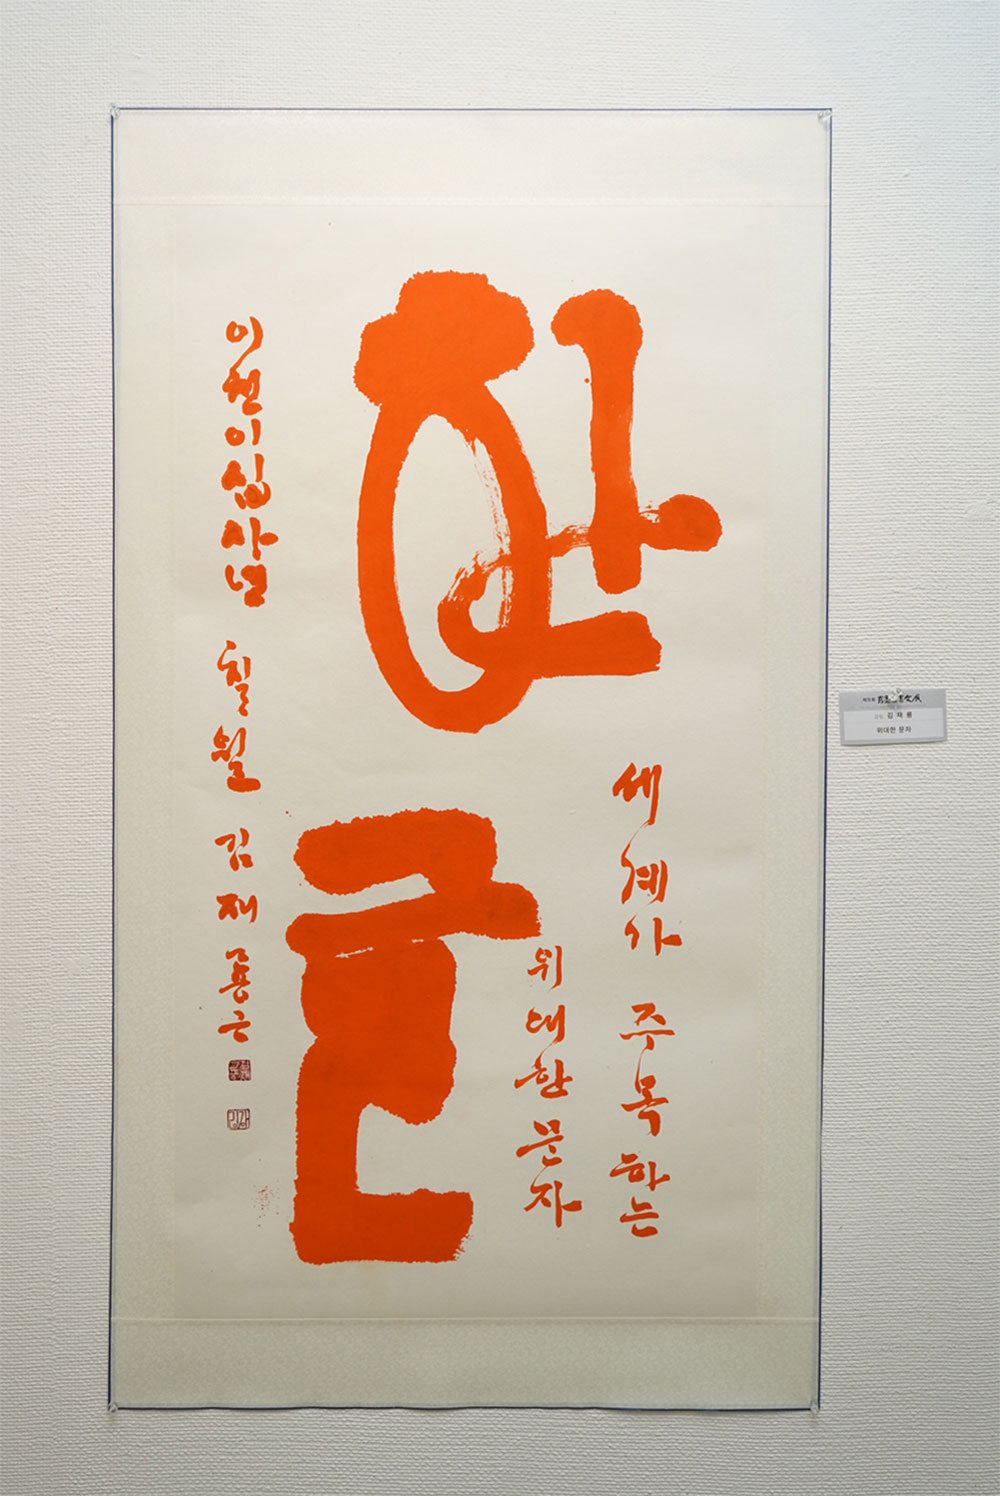 한글
세계사 주목하는
위대한 문자
이천이십사년 칠월 김재룡 근
김재룡
위대한 문자